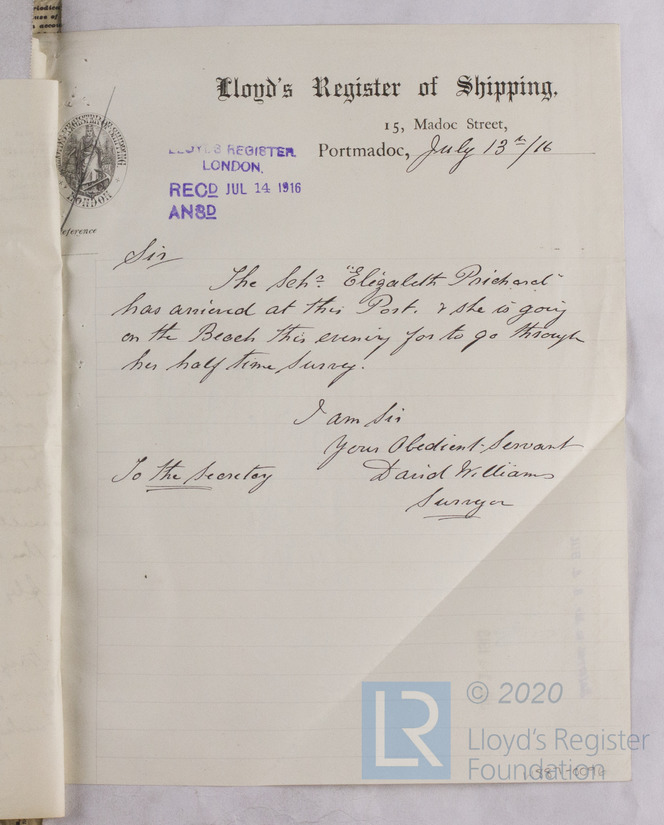 Lloyd's Register of Shipping,
15, Madoc Street,
Portmadoc, July 13th/16
LLOYD'S REGISTER.
LONDON.
REC'D JUL 14 1916
ANS'D
LONDON
eference
Sir
The Schr. "Elizabeth Prichard"
has arrived at this Port. & she is going
on the Beach this evening for to go through
her half time Survey.
I am Sir
Your Obedient Servant
To the Secretary
David Williams
Surveyor
LR
© 2020
Lloyd's Register
Foundation